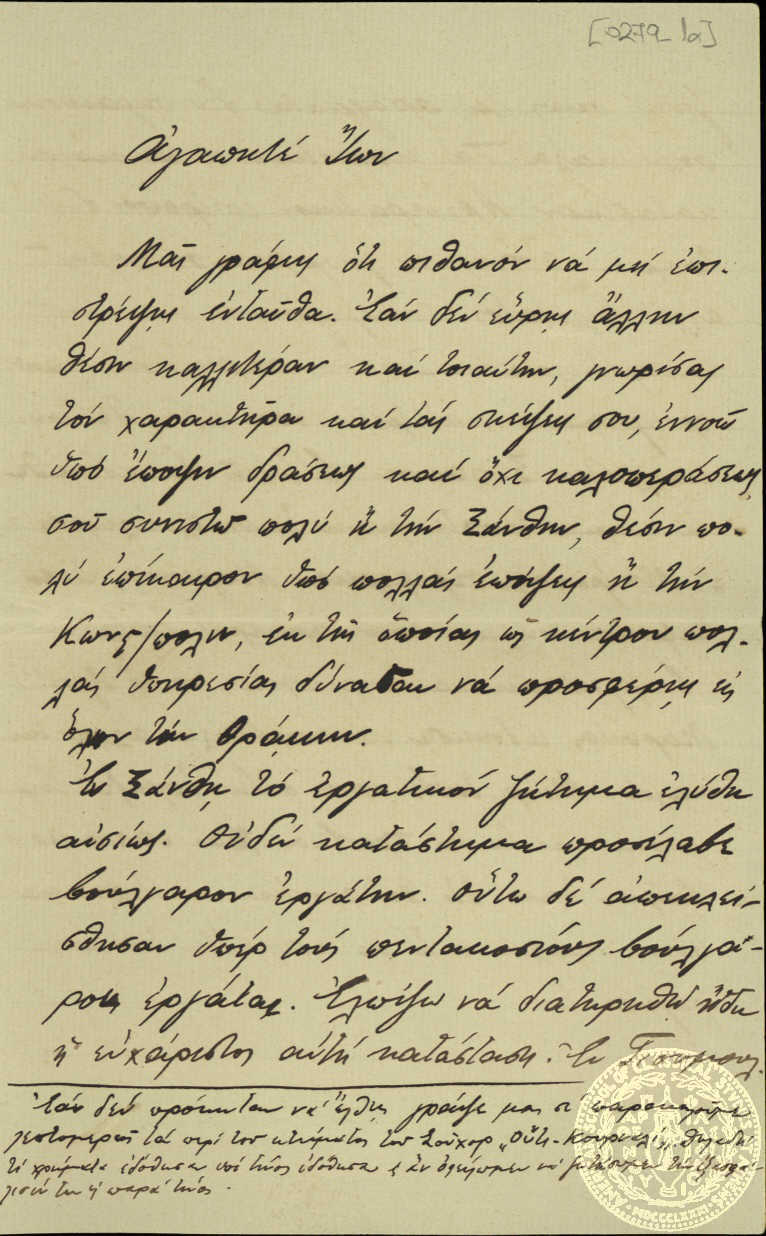 [0279_1α]
Ἀγαπητέ Ἴων
Μᾶς γράφεις ὅτι πιθανόν νά μή ἐπι-
στρέψῃς ἐνταῦθα. Ἐάν δέν εὕρῃς ἄλλην
θέσιν καλλιτέραν καί τοιαύτην, γνωρίσας
τόν χαρακτῆρα καί τάς σκέψεις σου, ἐννοῶ
ὑπό ἔποψιν δράσεως καί ὄχι καλοπεράσεως,
σοῦ συνιστῶ πολύ ἤ τήν Ξάνθην, θέσιν πο-
λύ ἐπίκαιρον ὑπό πολλάς ἐπόψεις ἤ τήν
Κων/πολιν, ἐκ τῆς ὁποίας ὡς κέντρον πολ-
λάς ὑπηρεσίας δύνασαι νά προσφέρῃς εἰς
ὅλην τήν Θράκην.
Ἐν Ξάνθῃ τό ἐργατικόν ζήτημα ἐλύθη
αἰσίως. Οὐδέν κατάστημα προσέλαβε
βούλγαρον ἐργάτην. Οὕτω δέ ἀπεκλεί-
σθησαν ὑπέρ τούς πεντακοσίους βουλγά-
ρους ἐργάτας. Ἐλπίζω νά διατηρηθῇ ἤδη
ἡ εὐχάριστος αὐτή κατάστασις. Ἐν Γκιουμουλ-
Ἐάν δέν πρόκηται νά ἔλθῃς γράψε μας σέ παρακαλοῦμε
λεπτομερῶς τά περί τοῦ κτήματος τοῦ
τά χρήματα ἐδόθησαν ὑπό τίνος ἐδόθησαν νά ζητήσωμεν τήν ἐξασφά-
λισίν των ἤ παρά τίνος.